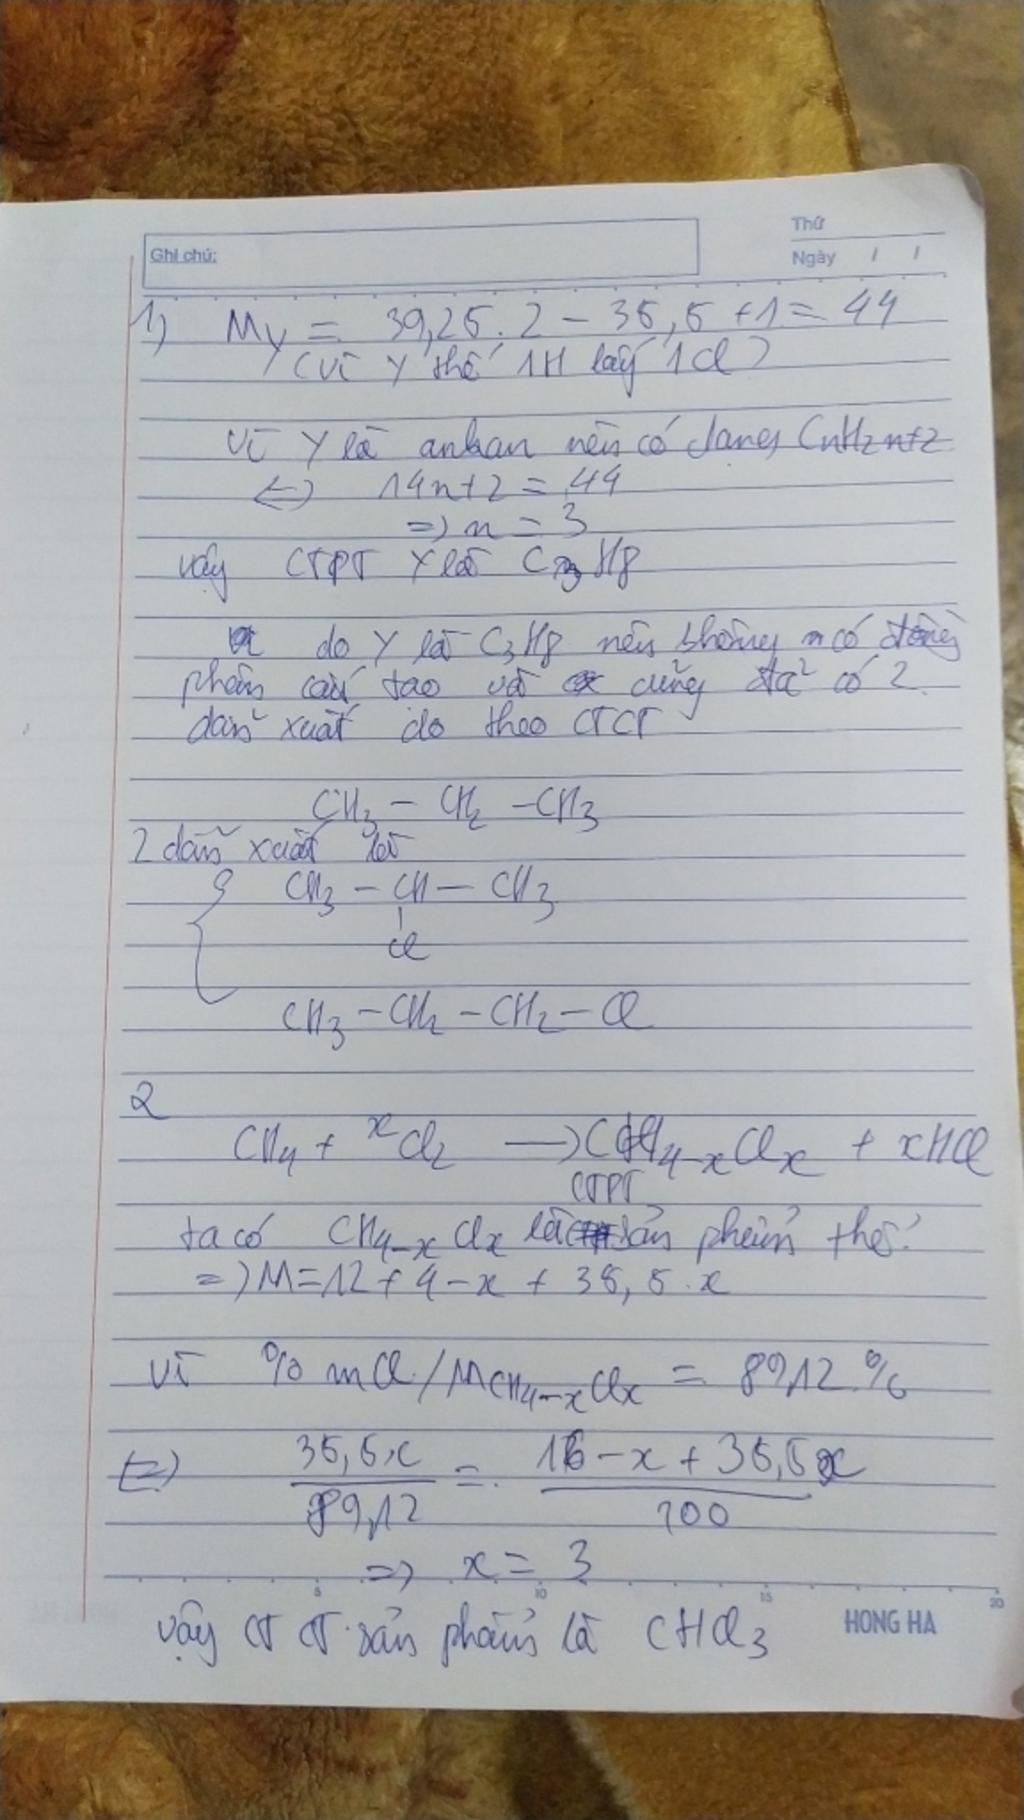 Ghi chú:
Thứ
Ngày / /
1) My = 39,25.2 - 35,5 +1 = 44
(vì Y thế 1H lấy 1Cl)
Vì Y là ankan nên có dạng CnH2n+2
<=> 14n+2 = 44
=> n = 3
vậy CTPT Y là C3H8
do Y là C3H8 nên không có đồng
phân cấu tạo và cũng đã có 2
dẫn xuất do theo CTCT
CH3 - CH2 - CH3
2 dẫn xuất là
CH3 - CH - CH3
Cl
CH3 - CH2 - CH2 - Cl
2
CH4 + xCl2 → CH4-xClx + xHCl
CTPT
ta có CH4-xClx là sản phẩm thế.
=> M = 12 + 4 - x + 35,5.x
Vì % mCl/MCH4-xClx = 89,12 %
<=> 35,5x / 89,12 = 16 - x + 35,5x / 100
=> x = 3
5 10 15 20
vậy CTCT sản phẩm là CHCl3
HONG HA